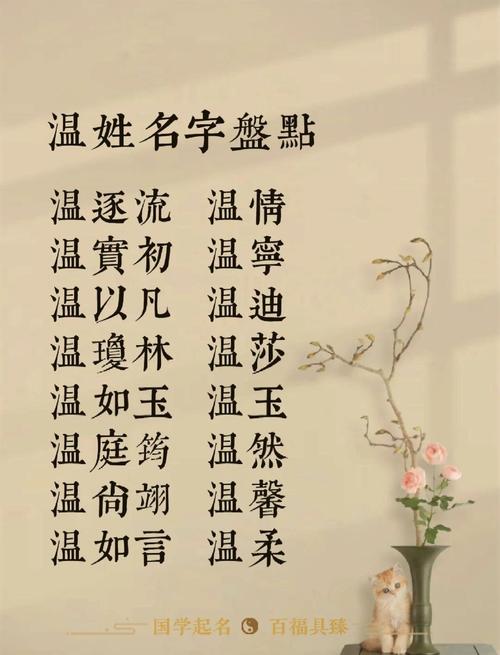 温姓名字盤點
温逐流 温情
温實初 温寧
温以凡 温迪
温瓊林 温莎
温如玉 温玉
温庭筠 温然
温尙翊 温馨
温如言 温柔
国学起名 百福具臻